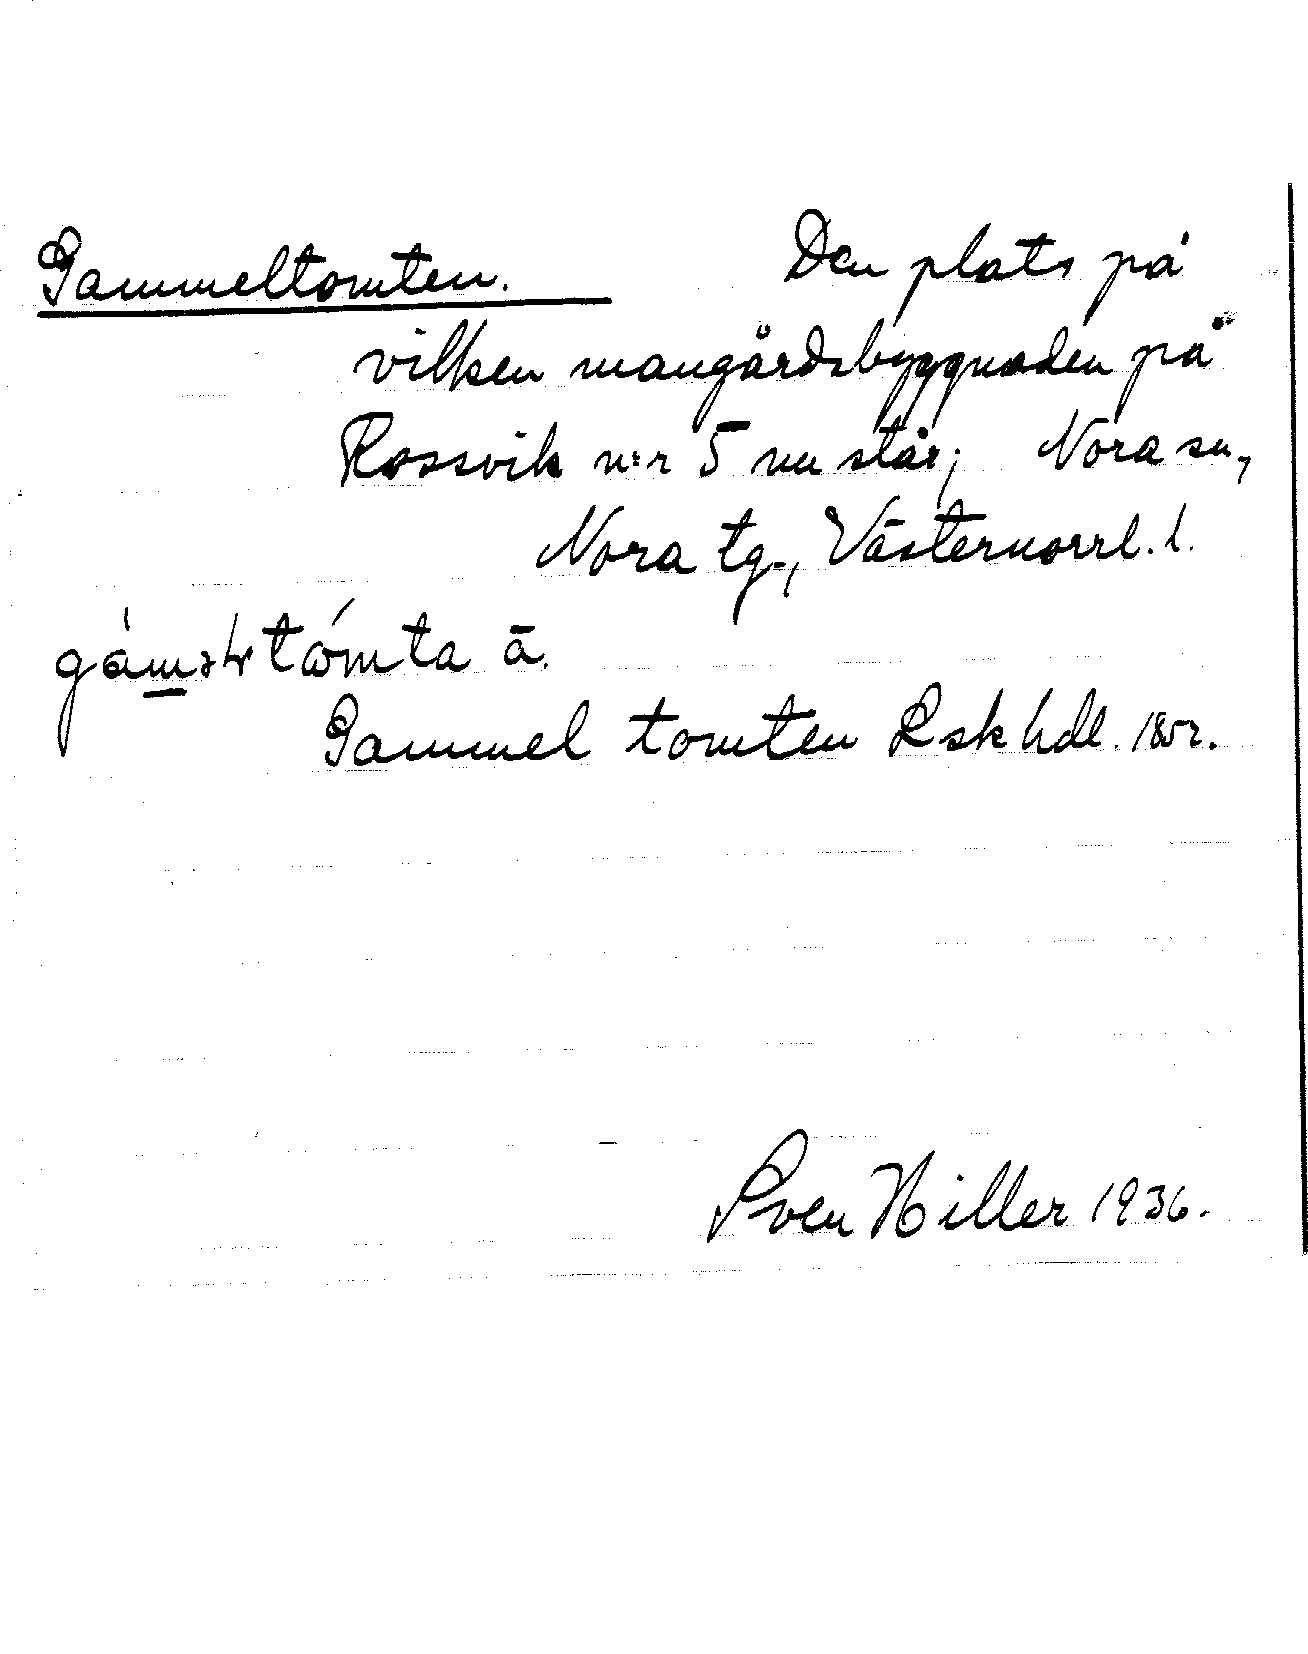 Gammeltomten. Den plats på
vilken mangårdsbyggnaden på
Rossvik n:r 5 nu står; Nora sn,
Nora tg., Västernorrl. l.
tómta ā.
Gammel tomten Lsk hdl. 1852.
Sven Hiller 1936.